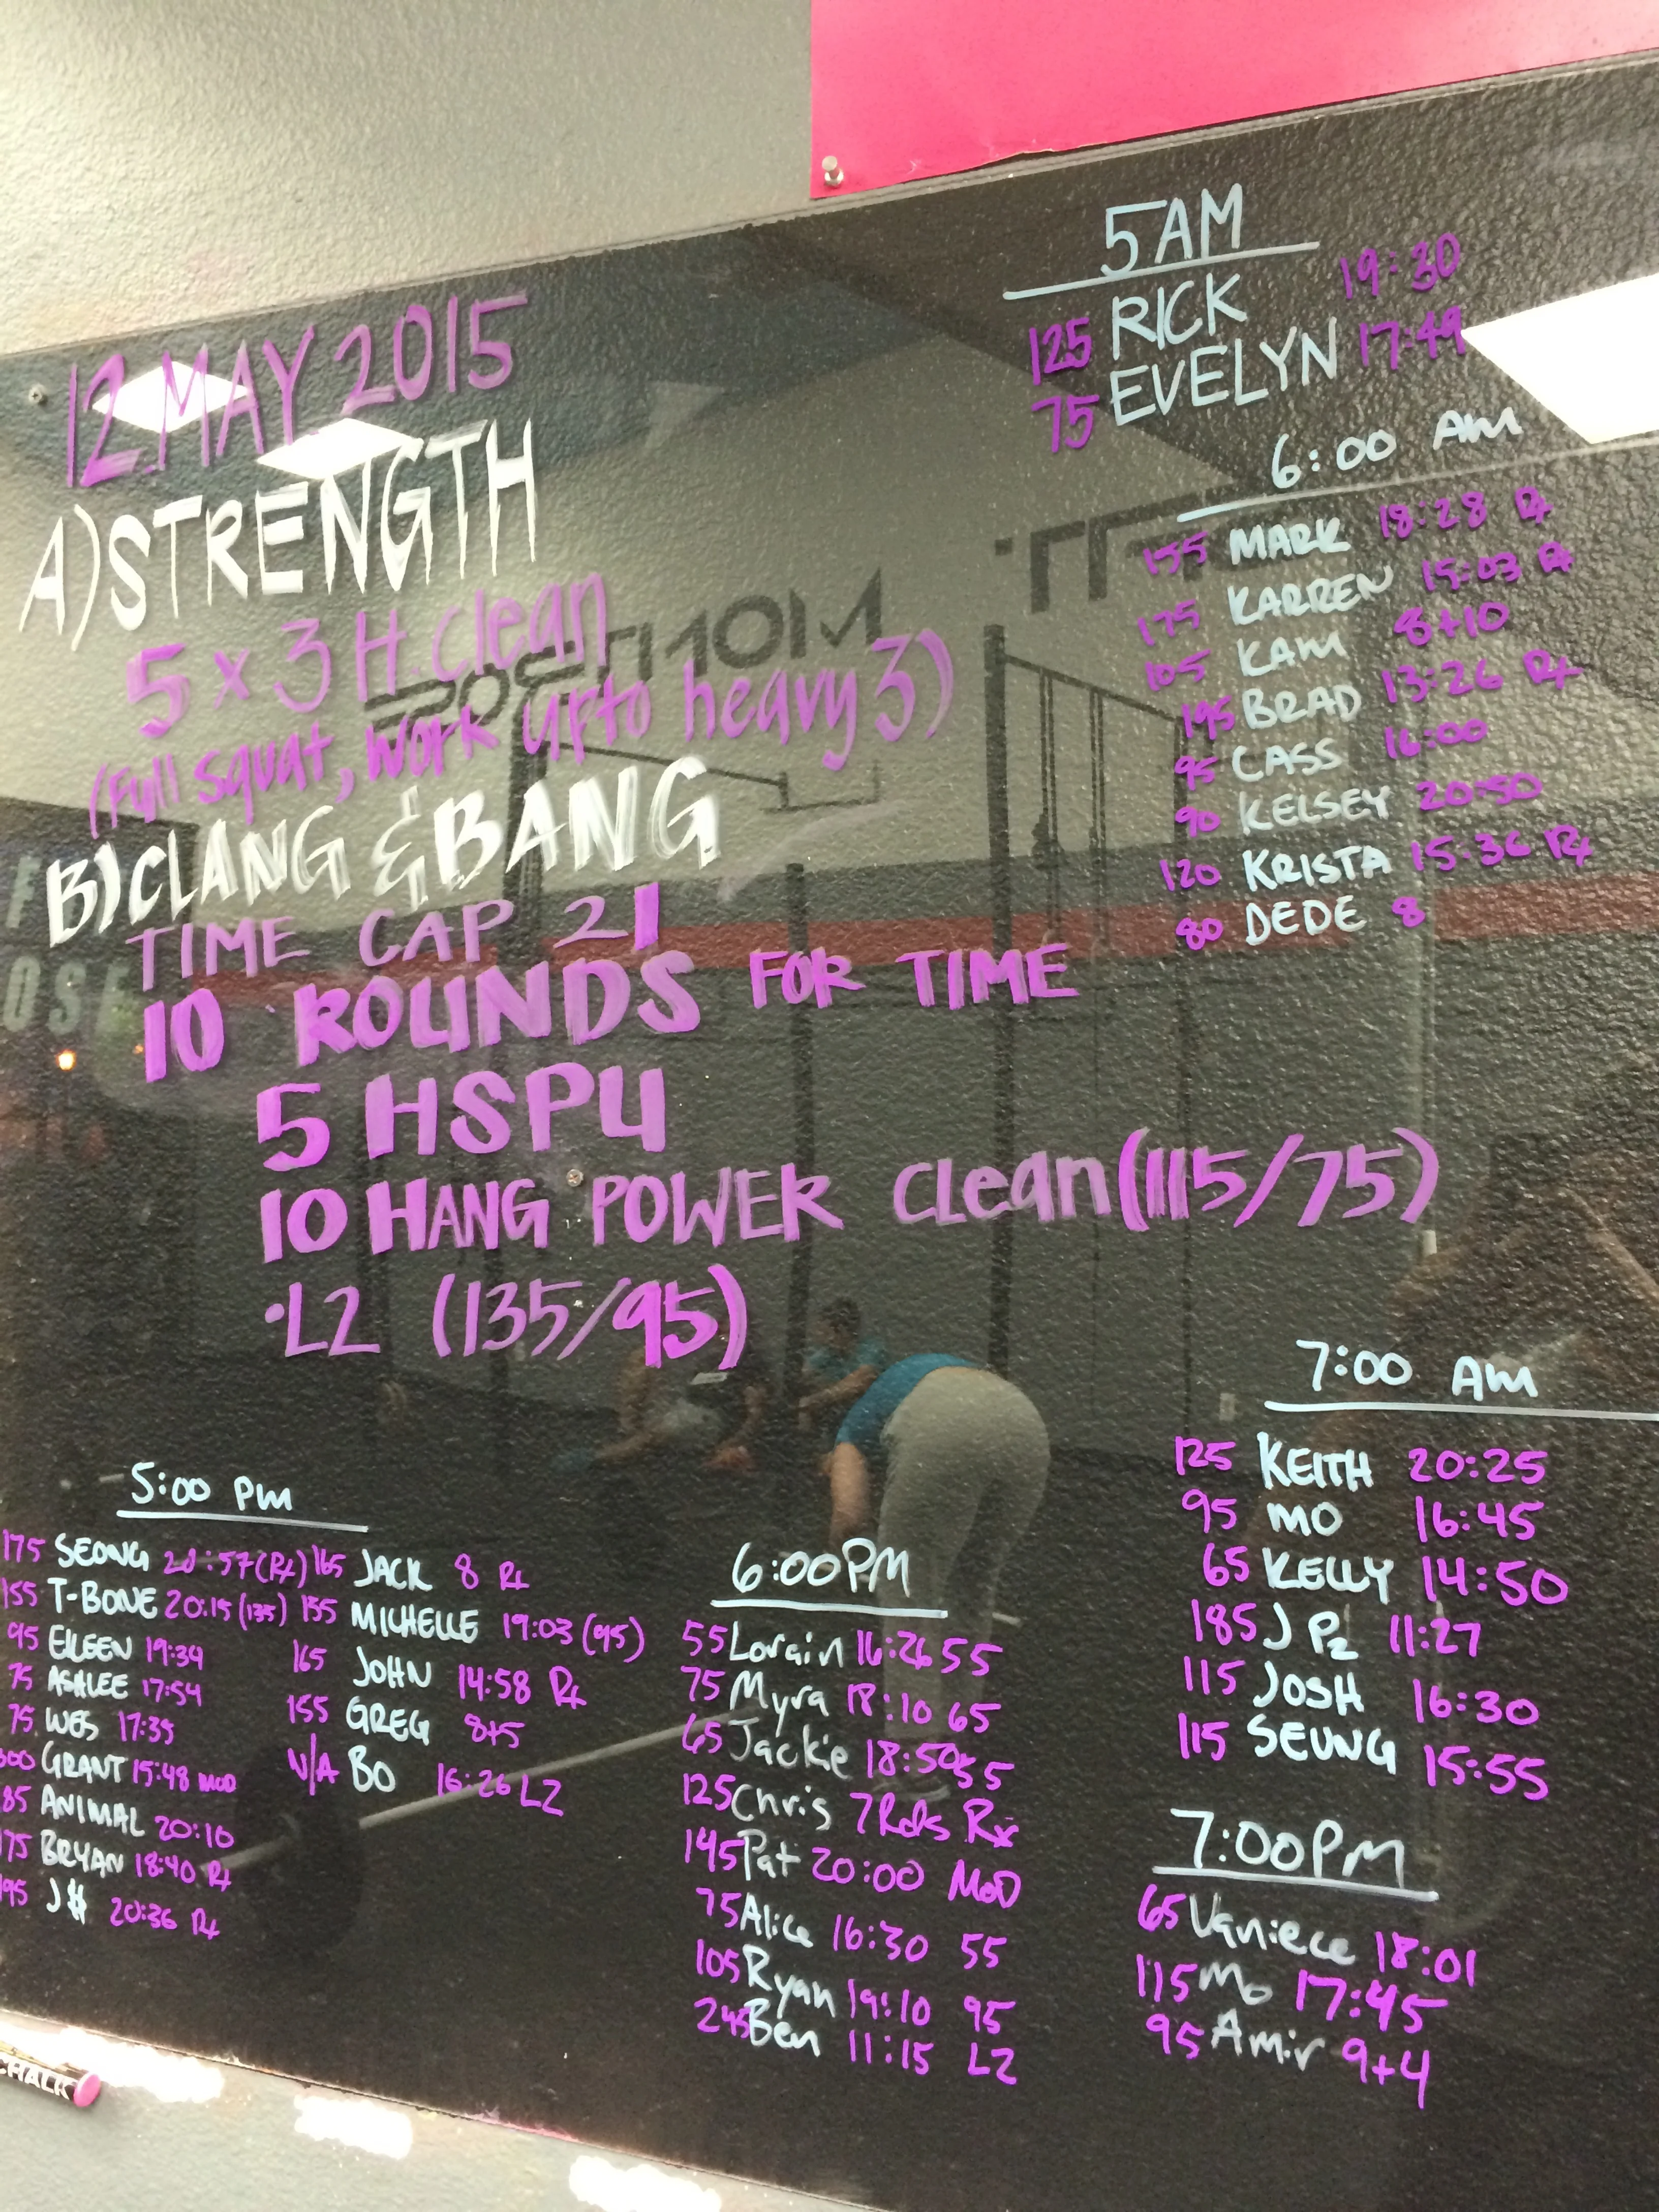 12 MAY 2015
A) STRENGTH
5 x 3 H. clean
(Full squat, work up to heavy 3)
B) CLANG & BANG
TIME CAP 21
10 ROUNDS FOR TIME
5 HSPU
10 HANG POWER Clean (115/75)
·L2 (135/95)
5AM
125 RICK 19:30
75 EVELYN 17:49
6:00 AM
155 MARK 18:28 Rx
175 KARREN 15:03 Rx
105 KAM 8+10
195 BRAD 13:26 Rx
95 CASS 16:00
90 KELSEY 20:50
120 KRISTA 15:36 Rx
80 DEDE 8
7:00 AM
125 KEITH 20:25
95 MO 16:45
65 KELLY 14:50
185 JP2 11:27
115 JOSH 16:30
115 SEUNG 15:55
5:00 PM
175 SEONG 20:57 (Rx)
155 T-BONE 20:15 (135)
95 EILEEN 19:39
75 ASHLEE 17:54
75 WES 17:35
GRANT 15:48 MOD
85 ANIMAL 20:10
175 BRYAN 18:40 Rx
195 J$ 20:36 Rx
165 JACK 8 Rx
155 MICHELLE 19:03 (95)
165 JOHN 14:58 Rx
155 GREG 8+5
N/A BO 16:26 L2
6:00PM
55 Lorain 16:26 55
75 Myra 18:10 65
65 Jackie 18:50 55
125 Chris 7 Rds Rx
145 Pat 20:00 MOD
75 Alice 16:30 55
105 Ryan 19:10 95
245 Ben 11:15 L2
7:00PM
65 Vaniece 18:01
115 Mo 17:45
95 Amir 9+4
CHALK